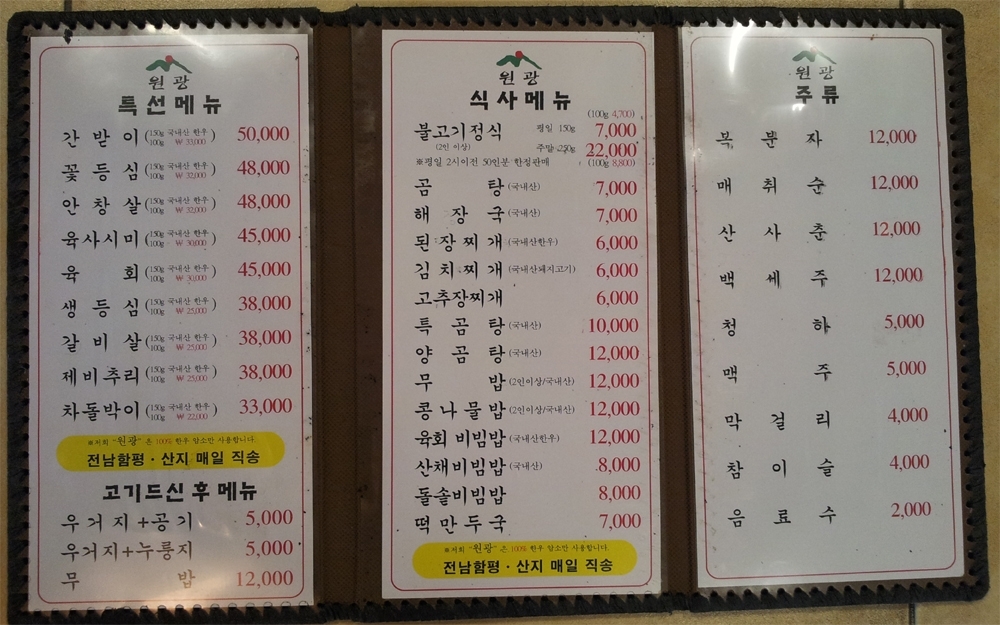 원광
특선메뉴
간받이 (150g 국내산 한우 100g ₩ 33,000) 50,000
꽃등심 (150g 국내산 한우 100g ₩ 32,000) 48,000
안창살 (150g 국내산 한우 100g ₩ 32,000) 48,000
육사시미 (150g 국내산 한우 100g ₩ 30,000) 45,000
육회 (150g 국내산 한우 100g ₩ 30,000) 45,000
생등심 (150g 국내산 한우 100g ₩ 25,000) 38,000
갈비살 (150g 국내산 한우 100g ₩ 25,000) 38,000
제비추리 (150g 국내산 한우 100g ₩ 25,000) 38,000
차돌박이 (150g 국내산 한우 100g ₩ 22,000) 33,000
※저희 "원광"은 100% 한우 암소만 사용합니다.
전남함평·산지 매일 직송
고기드신 후 메뉴
우거지+공기 5,000
우거지+누룽지 5,000
무밥 12,000
원광
식사메뉴
(100g 4,700)
불고기정식 평일 150g 7,000
(2인 이상) 주말 250g 22,000
※평일 2시이전 50인분 한정판매 (100g 8,800)
곰탕(국내산) 7,000
해장국(국내산) 7,000
된장찌개(국내산한우) 6,000
김치찌개(국내산돼지고기) 6,000
고추장찌개 6,000
특곰탕(국내산) 10,000
양곰탕(국내산) 12,000
무밥(2인이상/국내산) 12,000
콩나물밥(2인이상/국내산) 12,000
육회비빔밥(국내산한우) 12,000
산채비빔밥(국내산) 8,000
돌솥비빔밥 8,000
떡만두국 7,000
※저희 "원광"은 100% 한우 암소만 사용합니다.
전남함평·산지 매일 직송
원광
주류
복분자 12,000
매취순 12,000
산사춘 12,000
백세주 12,000
청하 5,000
맥주 5,000
막걸리 4,000
참이슬 4,000
음료수 2,000